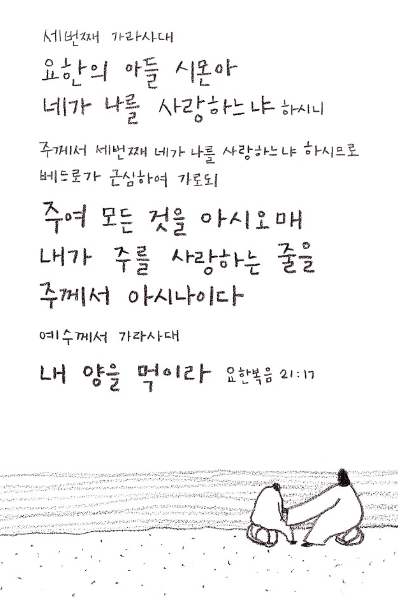 세번째 가라사대
요한의 아들 시몬아
네가 나를 사랑하느냐 하시니
주께서 세번째 네가 나를 사랑하느냐 하시므로
베드로가 근심하여 가로되
주여 모든 것을 아시오매
내가 주를 사랑하는 줄을
주께서 아시나이다
예수께서 가라사대
내 양을 먹이라 요한복음 21:17